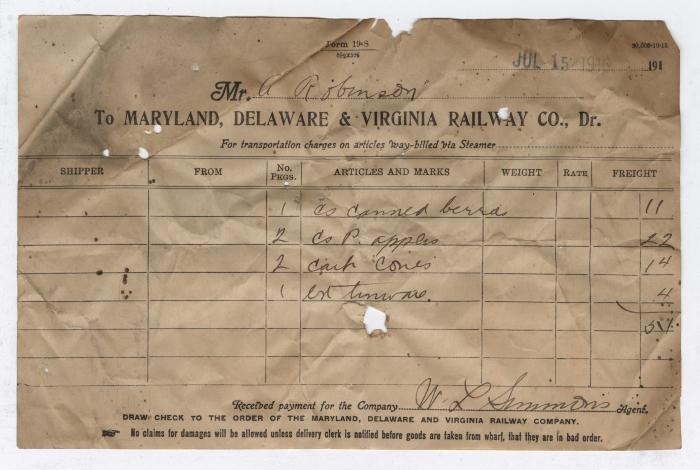 Form 19-S
30,000-10-15
JUL 15 1916 191
Mr. A Robinson
To MARYLAND, DELAWARE & VIRGINIA RAILWAY CO., Dr.
For transportation charges on articles way-billed via Steamer
SHIPPER FROM No. PKGS. ARTICLES AND MARKS WEIGHT RATE FREIGHT
1 cs canned 11
2 cs P. apples 22
2 14
1 tinware. 4
51
Received payment for the Company W L Simmons Agent.
DRAW CHECK TO THE ORDER OF THE MARYLAND, DELAWARE AND VIRGINIA RAILWAY COMPANY.
No claims for damages will be allowed unless delivery clerk is notified before goods are taken from wharf, that they are in bad order.